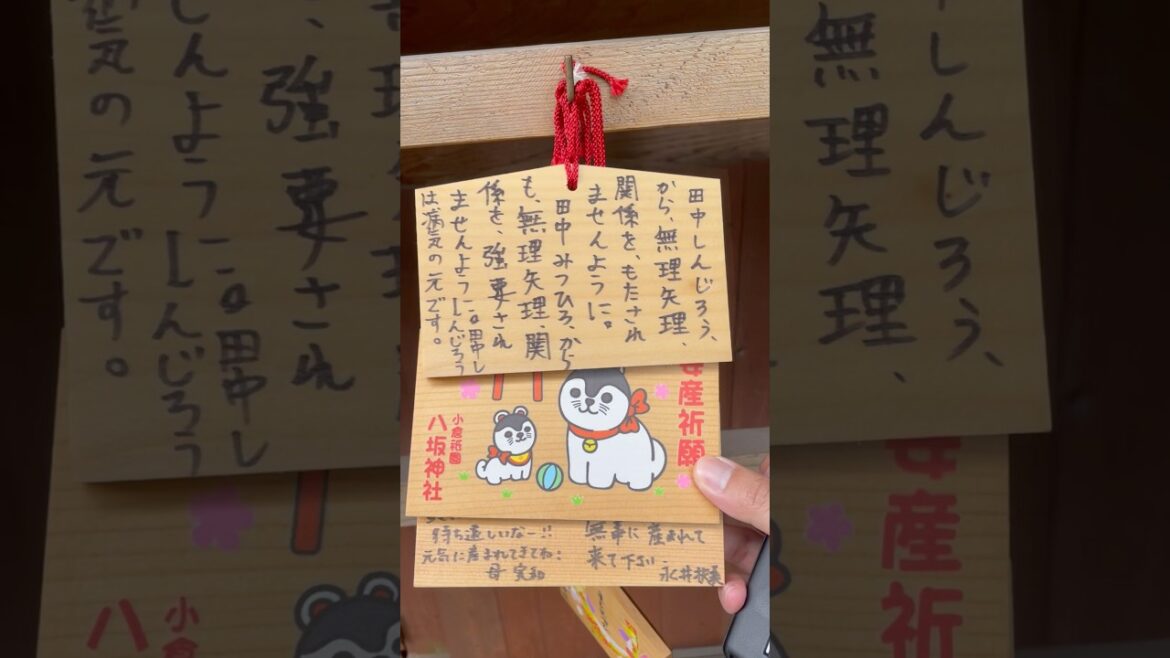 田中しんじろう、
から、無理矢理、
関係を、もたされ
ませんように。
田中みつひろ、から
も、無理矢理、関
係を、強要され
ませんように。田中し
んじろう
は病気の元です。
安産祈願
小倉祇園
八坂神社
無事に産まれて
来て下さい
永井
待ち遠しいなー!!
元気に産まれてきてね!
母